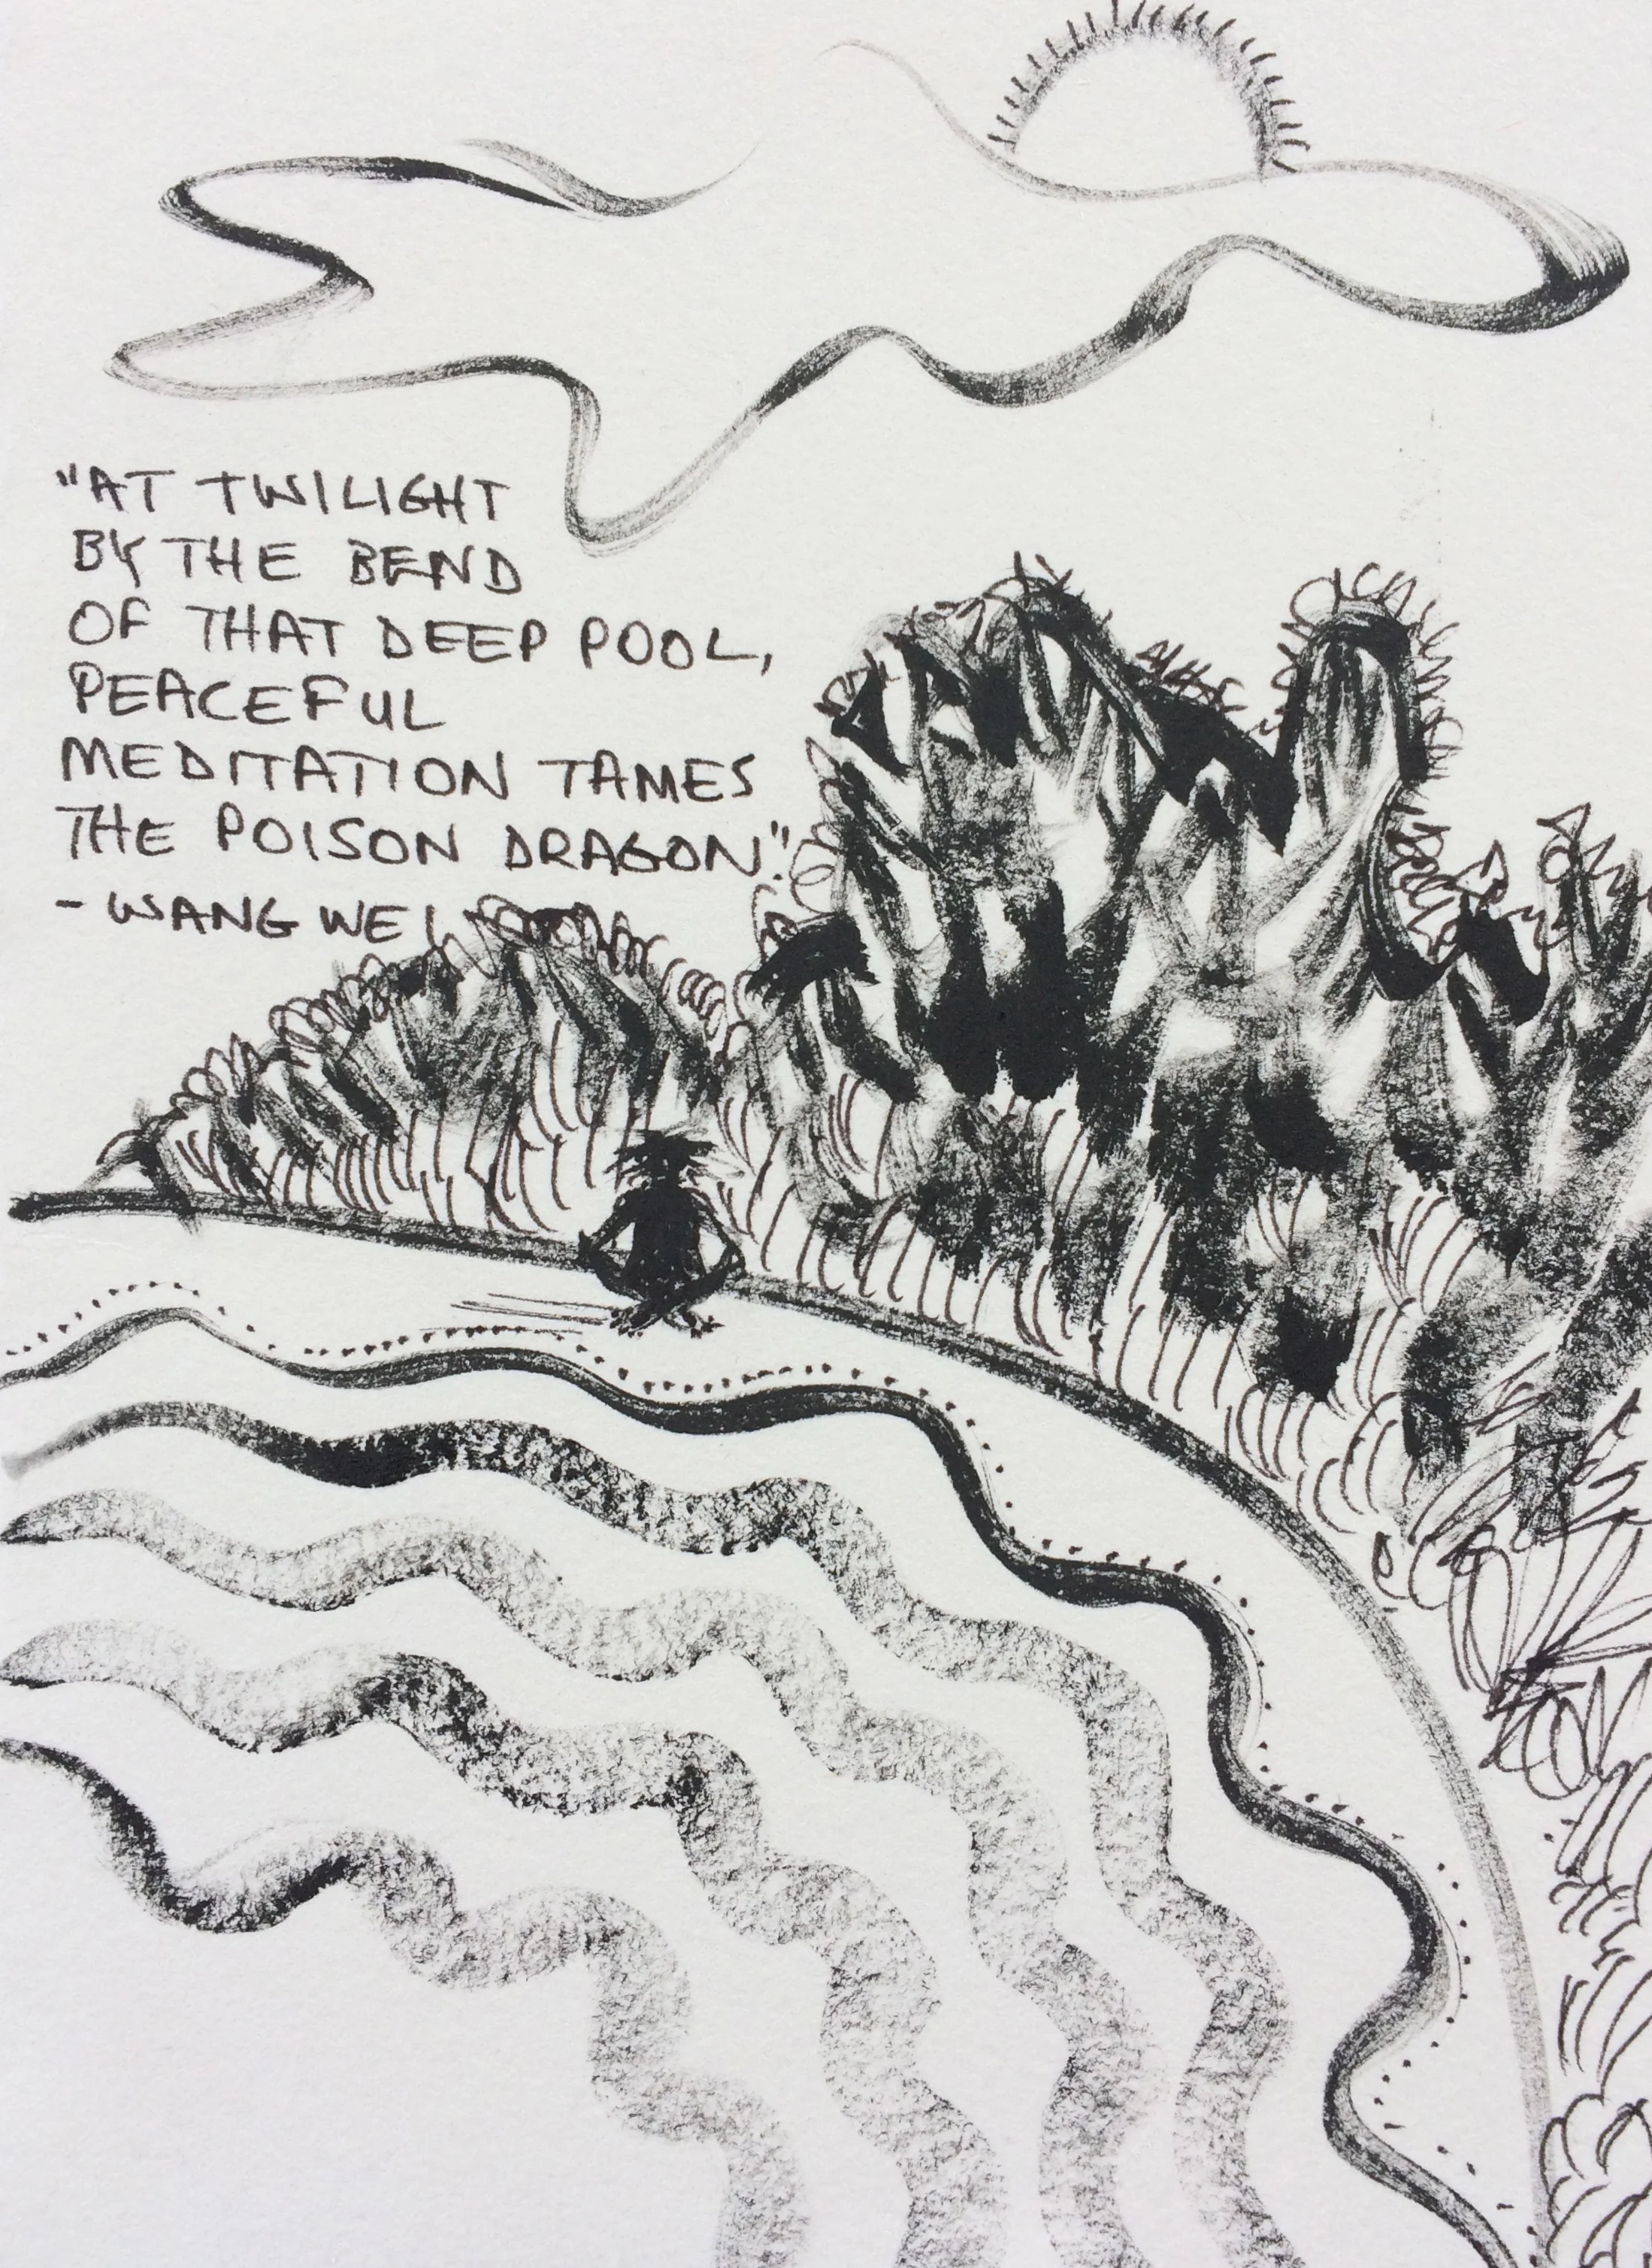 "AT TWILIGHT
BY THE BEND
OF THAT DEEP POOL,
PEACEFUL
MEDITATION TAMES
THE POISON DRAGON."
- WANG WEI